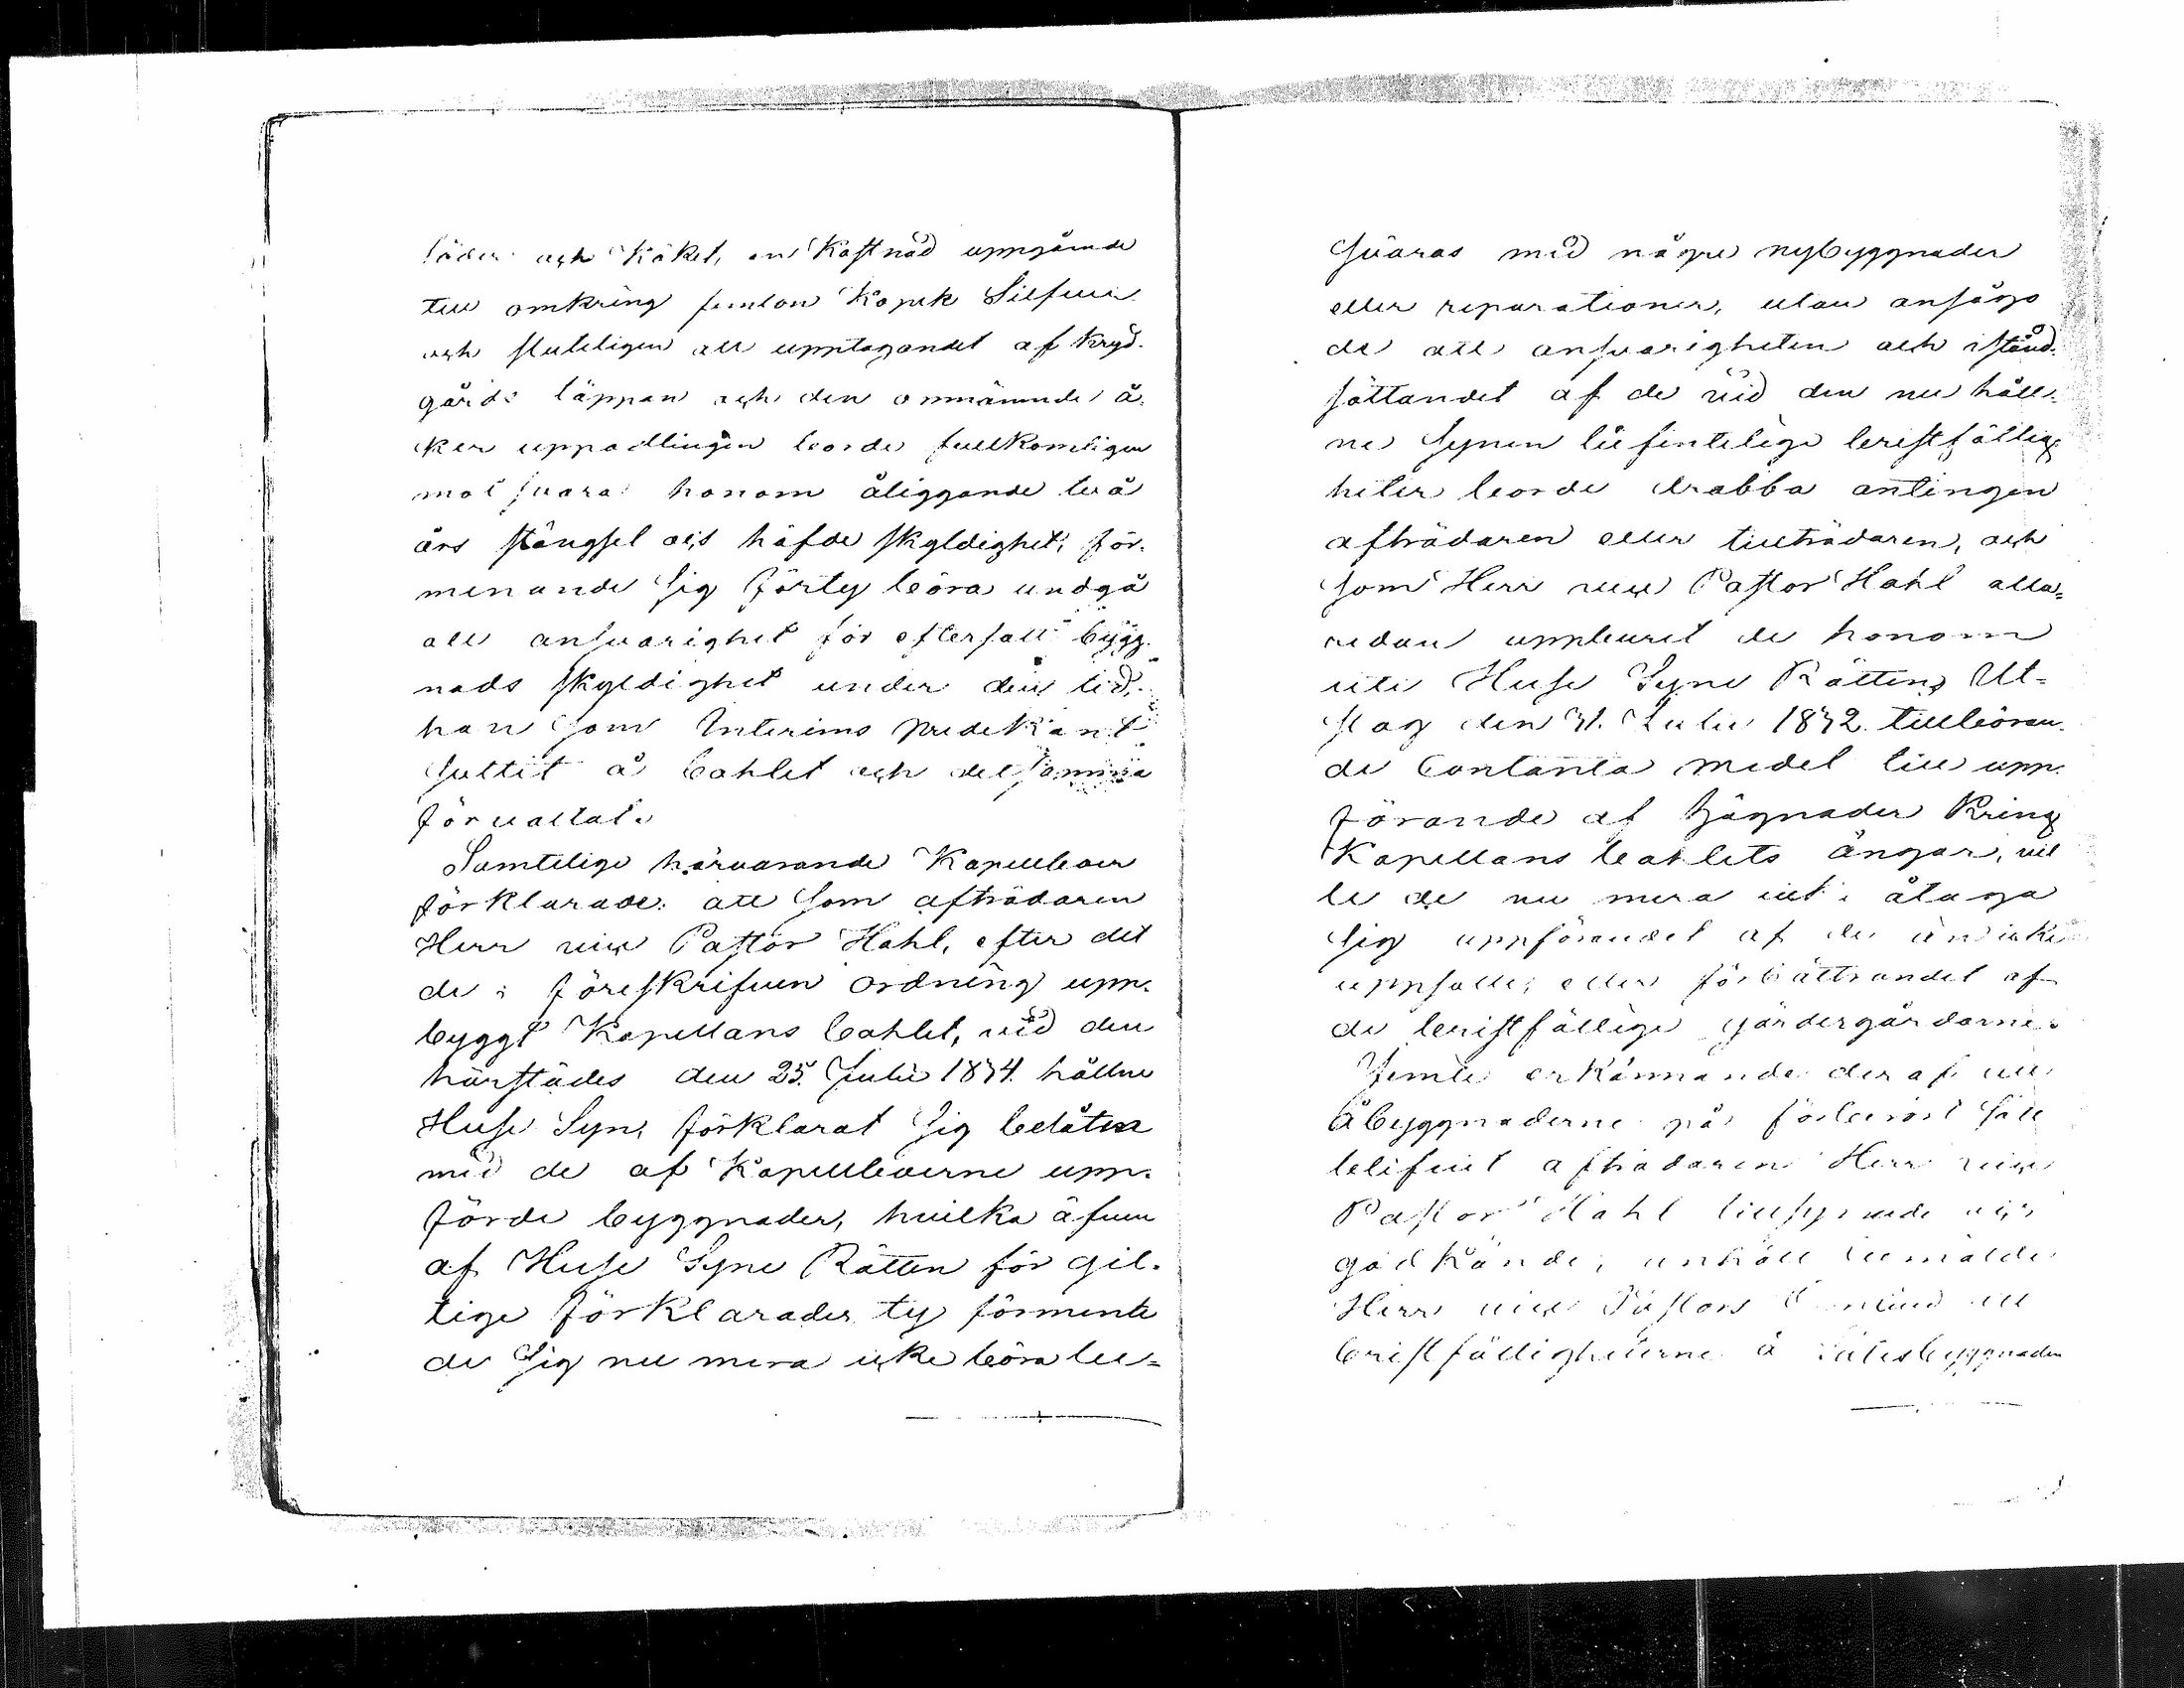 läder och Köket, en Kostnad uppgående
till omkring femton Kopek Silfver
och sluteligen att upptagandet af kryd-
gårds täppan och den omnämnde å-
ker uppodlingen borde fullkomligen
motsvara honom åliggande två
års stängsel och häfde skyldighet, för-
menande sig förty böra undgå
all ansvarighet för eftersatt bygg-
nads skyldighet under den tid,
han som Interims predikant
suttit å bohlet och detsamma
förvaltat.
Samtelige härvarande Kapellboer
förklarade: att som afträdaren
Herr vice Pastor Hahl, efter det
de i föreskrifven ordning upp-
byggt Kapellans bohlet, vid den
härstädes den 25. Julii 1834. hållne
Huse Syn, förklarat sig belåten
med de af Kapellboerne upp-
förde byggnader, hvilka äfven
af Huse Syne Rätten för gil-
tige förklarades ty förmente
de sig nu mera icke böra be-
svaras med någre nybyggnader
eller reparationer, utan ansågo
de att ansvarigheten och istånd-
sättandet af de vid den nu håll-
ne Synen befintelige bristfällig-
heter borde drabba antingen
afträdaren eller tillträdaren, och
som Herr vice Pastor Hahl alla-
redan uppburit de honom
uti Huse Syne Rättens Ut-
slag den 31. Julii 1832. tillböran-
de Contanta medel till upp-
förande af hägnader Kring
Kapellans bohlets ängar, vil
le de nu mera icke åtaga
sig uppförandet af de än icke
uppsatte, eller förbättrandet af
de bristfällige gärdesgårdarne.
Jemte erkännande deraf att
Åbyggnaderne på förberört sätt
blifvit afträdaren Herr vice
Pastor Hahl tillsynade och
godkände, anhöll bemälde
Herr vice Pastors att
bristfälligheterne å Sätesbyggnaden